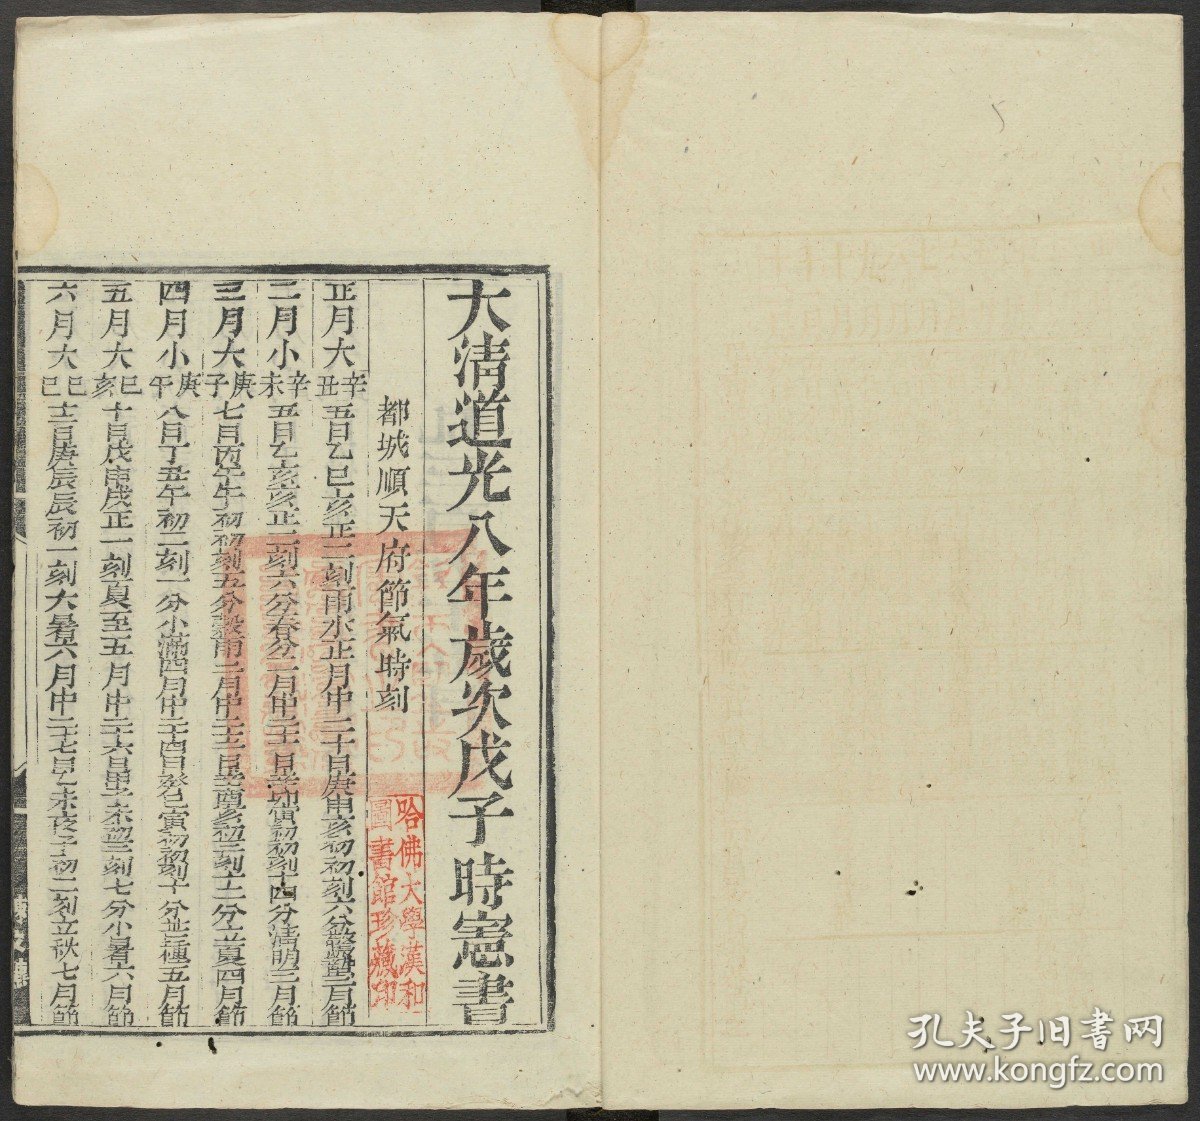 大清道光八年歲次戊子時憲書
都城順天府節氣時刻
正月大辛丑五日乙巳亥正二刻雨水正月中二十日庚申亥初初刻六分驚蟄二月節
二月小辛未五日乙亥亥正一刻六分春分二月中二十一日辛卯寅初初刻十四分清明三月節
三月大庚子七日丙午午初初刻五分穀雨三月中二十二日辛酉亥初三刻十二分立夏四月節
四月小庚午八日丁丑午初二刻一分小滿四月中二十四日癸巳寅初初刻十分芒種五月節
五月大己亥十日戊申戌正一刻夏至五月中二十六日甲子未初三刻七分小暑六月節
六月大己巳十二日庚辰辰初一刻大暑六月中二十七日乙未夜子初二刻立秋七月節
哈佛大學漢和
圖書館珍藏印
孔夫子旧書网
www.kongfz.com